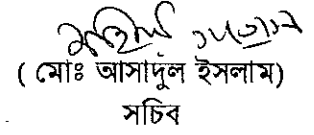 ( মোঃ আসাদুল ইসলাম)
সচিব